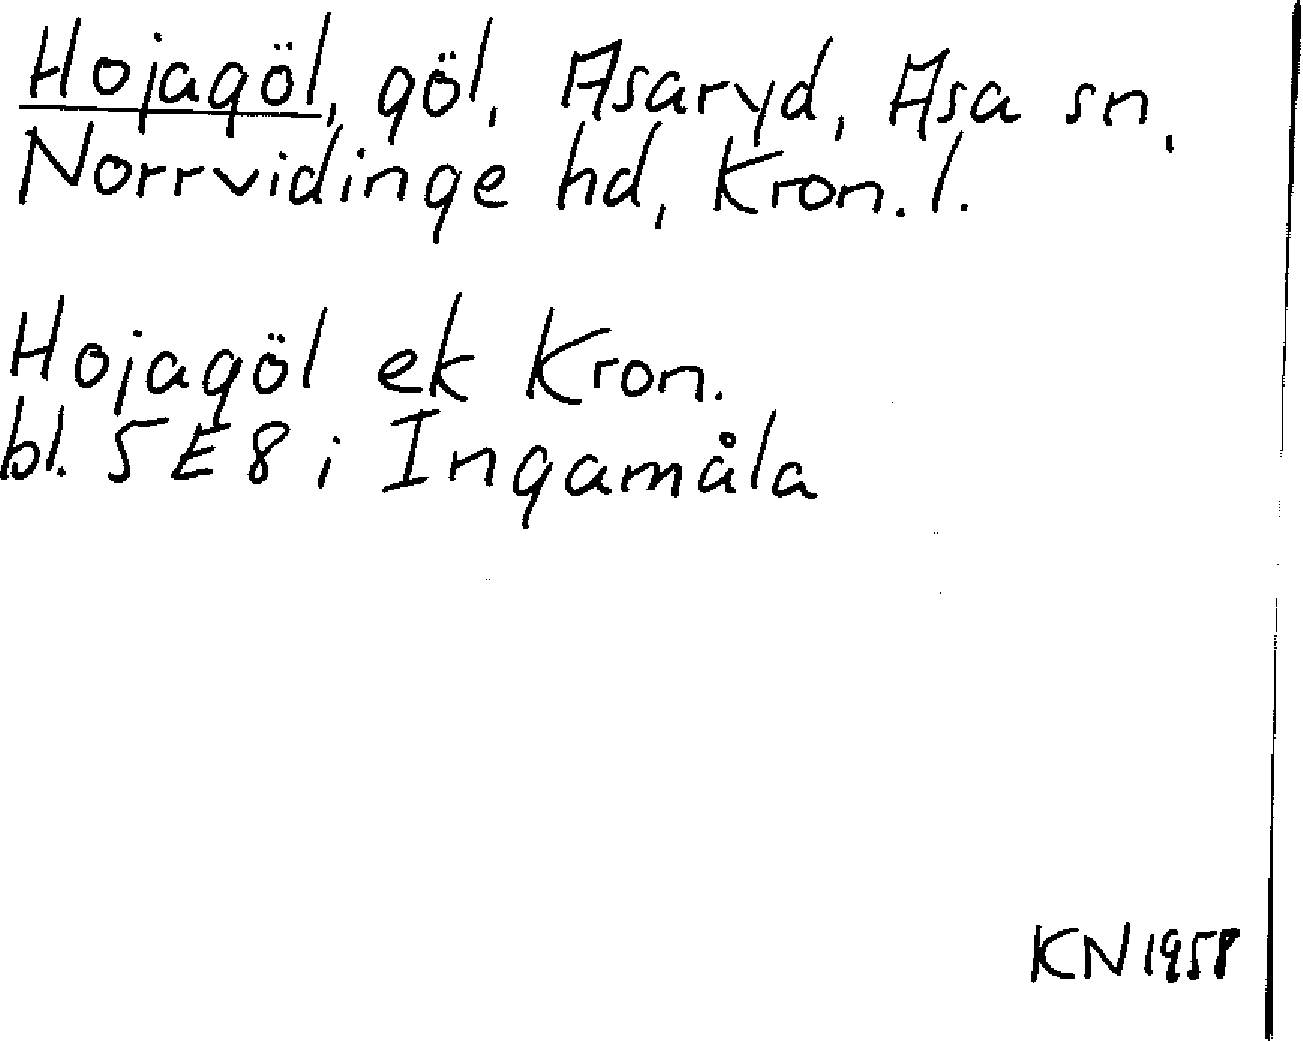 Hojagöl, göl, Asaryd, Asa sn,
Norrvidinge hd, Kron. l.
Hojagöl ek Kron.
bl. 5 E 8 i Ingamåla
KN 1958